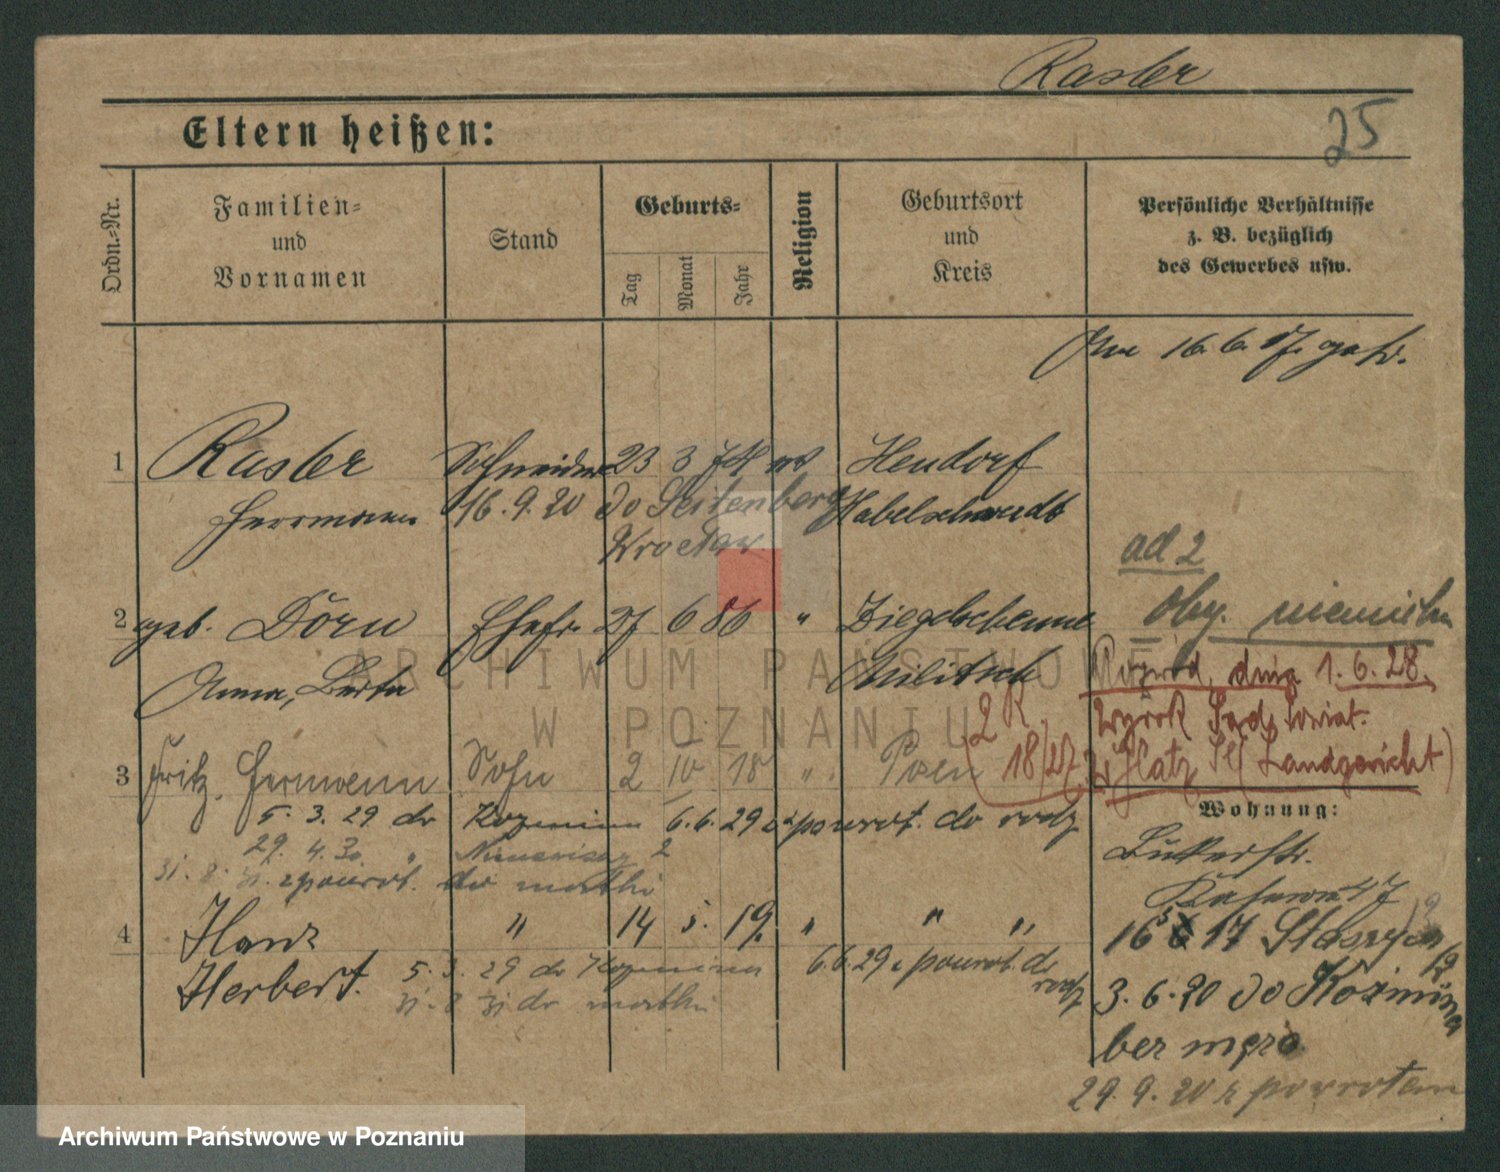 Rasler
25
Eltern heißen:
Ordn.-Nr.
Familien- und Vornamen
Stand
Geburts-
Tag
Monat
Jahr
Religion
Geburtsort und Kreis
Persönliche Verhältnisse z. B. bezüglich des Gewerbes usw.
16. 6. 17.
1 Rasler Schneider 23 3 Heudorf
Herrmann 16. 9. 20 do Seitenberg Habelschwerdt
Wrocław
ad 2
2 geb. Dörn Ehefr. 27 6 86 "
oby. niemiecka
Anna, Berta Militsch
Rozwód dnia 1. 6. 28.
Wyrok Sąd
2 R 18/27
Glatz (Landgericht)
3 Fritz, Hermann Sohn 2 10 18 " Posen
Wohnung:
5. 3. 29 do Kozmina 6. 6. 29 z powrot. do rodz
29. 4. 30 "
31. 8. 31. z powrot. do matki
4 Hans " 14 5. 19. " " "
Herbert. 5. 3. 29 do Kozmina 6. 6. 29 z powrot. do rodz
31. 8 31 do matki
16 17
3. 6. 20 do Kozmina
ber męża
29. 9. 20 z powrotem
ARCHIWUM PAŃSTWOWE
W POZNANIU
Archiwum Państwowe w Poznaniu